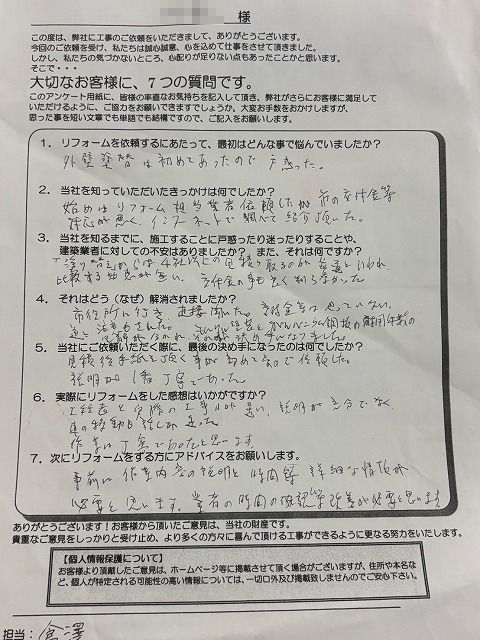 様
この度は、弊社に工事のご依頼をいただきまして、ありがとうございます。
今回のご依頼を受け、私たちは誠心誠意、心を込めて仕事をさせて頂きました。
しかし、私たちの気づかないところ、心配りが足りない点もあったことかと思います。
そこで・・・
大切なお客様に、7つの質問です。
このアンケート用紙に、皆様の率直なお気持ちを記入して頂き、弊社がさらにお客様に満足して
いただけるように、ご協力をお願いできますでしょうか。大変お手数をおかけしますが、
思った事を短い文章でも単語でも結構ですので、ご記入をお願いします。
1. リフォームを依頼するにあたって、最初はどんな事で悩んでいましたか?
外壁塗替は初めてあったので戸惑った。
2. 当社を知っていただいたきっかけは何でしたか?
始めはリフォーム担当業者依頼したが市の交付金等
対応が悪く、インターネットで調べて紹介頂いた。
3. 当社を知るまでに、施工することに戸惑ったり迷ったりすることや、
建築業者に対しての不安はありましたか? また、それは何ですか?
塗り替え 4社以上の見積り取るのが普通といわれ
比較する 無い。交付金の事も良く判らなかった。
4. それはどう(なぜ)解消されましたか?
市役所に行き、直接聞いた。
5. 当社にご依頼いただく際に、最後の決め手になったのは何でしたか?
見積後手紙を頂く事が初めてなので依頼した。
説明が1番丁寧であった。
6. 実際にリフォームをした感想はいかがですか?
工程表と実際の工事 違い、説明が充分でなく
車の移動 迷った。
作業は丁寧であったと思います
7. 次にリフォームをする方にアドバイスをお願いします。
事前に作業内容の説明と時間等 詳細な情報が
必要と思います。業者の時間の確認等改善が必要と思います
ありがとうございます!お客様から頂いたご意見は、当社の財産です。
貴重なご意見をしっかりと受け止め、より多くの方々に喜んで頂ける工事ができるように更なる努力をいたします。
【個人情報保護について】
お客様より頂戴したご意見は、ホームページ等に掲載させて頂く場合がございますが、住所や本名な
ど、個人が特定される可能性の高い情報については、一切口外及び掲載致しませんのでご安心下さい。
担当:會澤